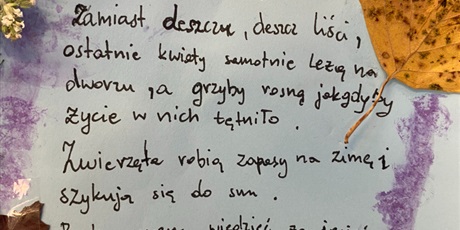 Zamiast deszczu, deszcz liści,
ostatnie kwiaty samotnie leżą na
dworzu, a grzyby rosną jakgdyby
życie w nich tętniło.
Zwierzęta robią zapasy na zimę i
szykują się do snu.
wiedzieć, że